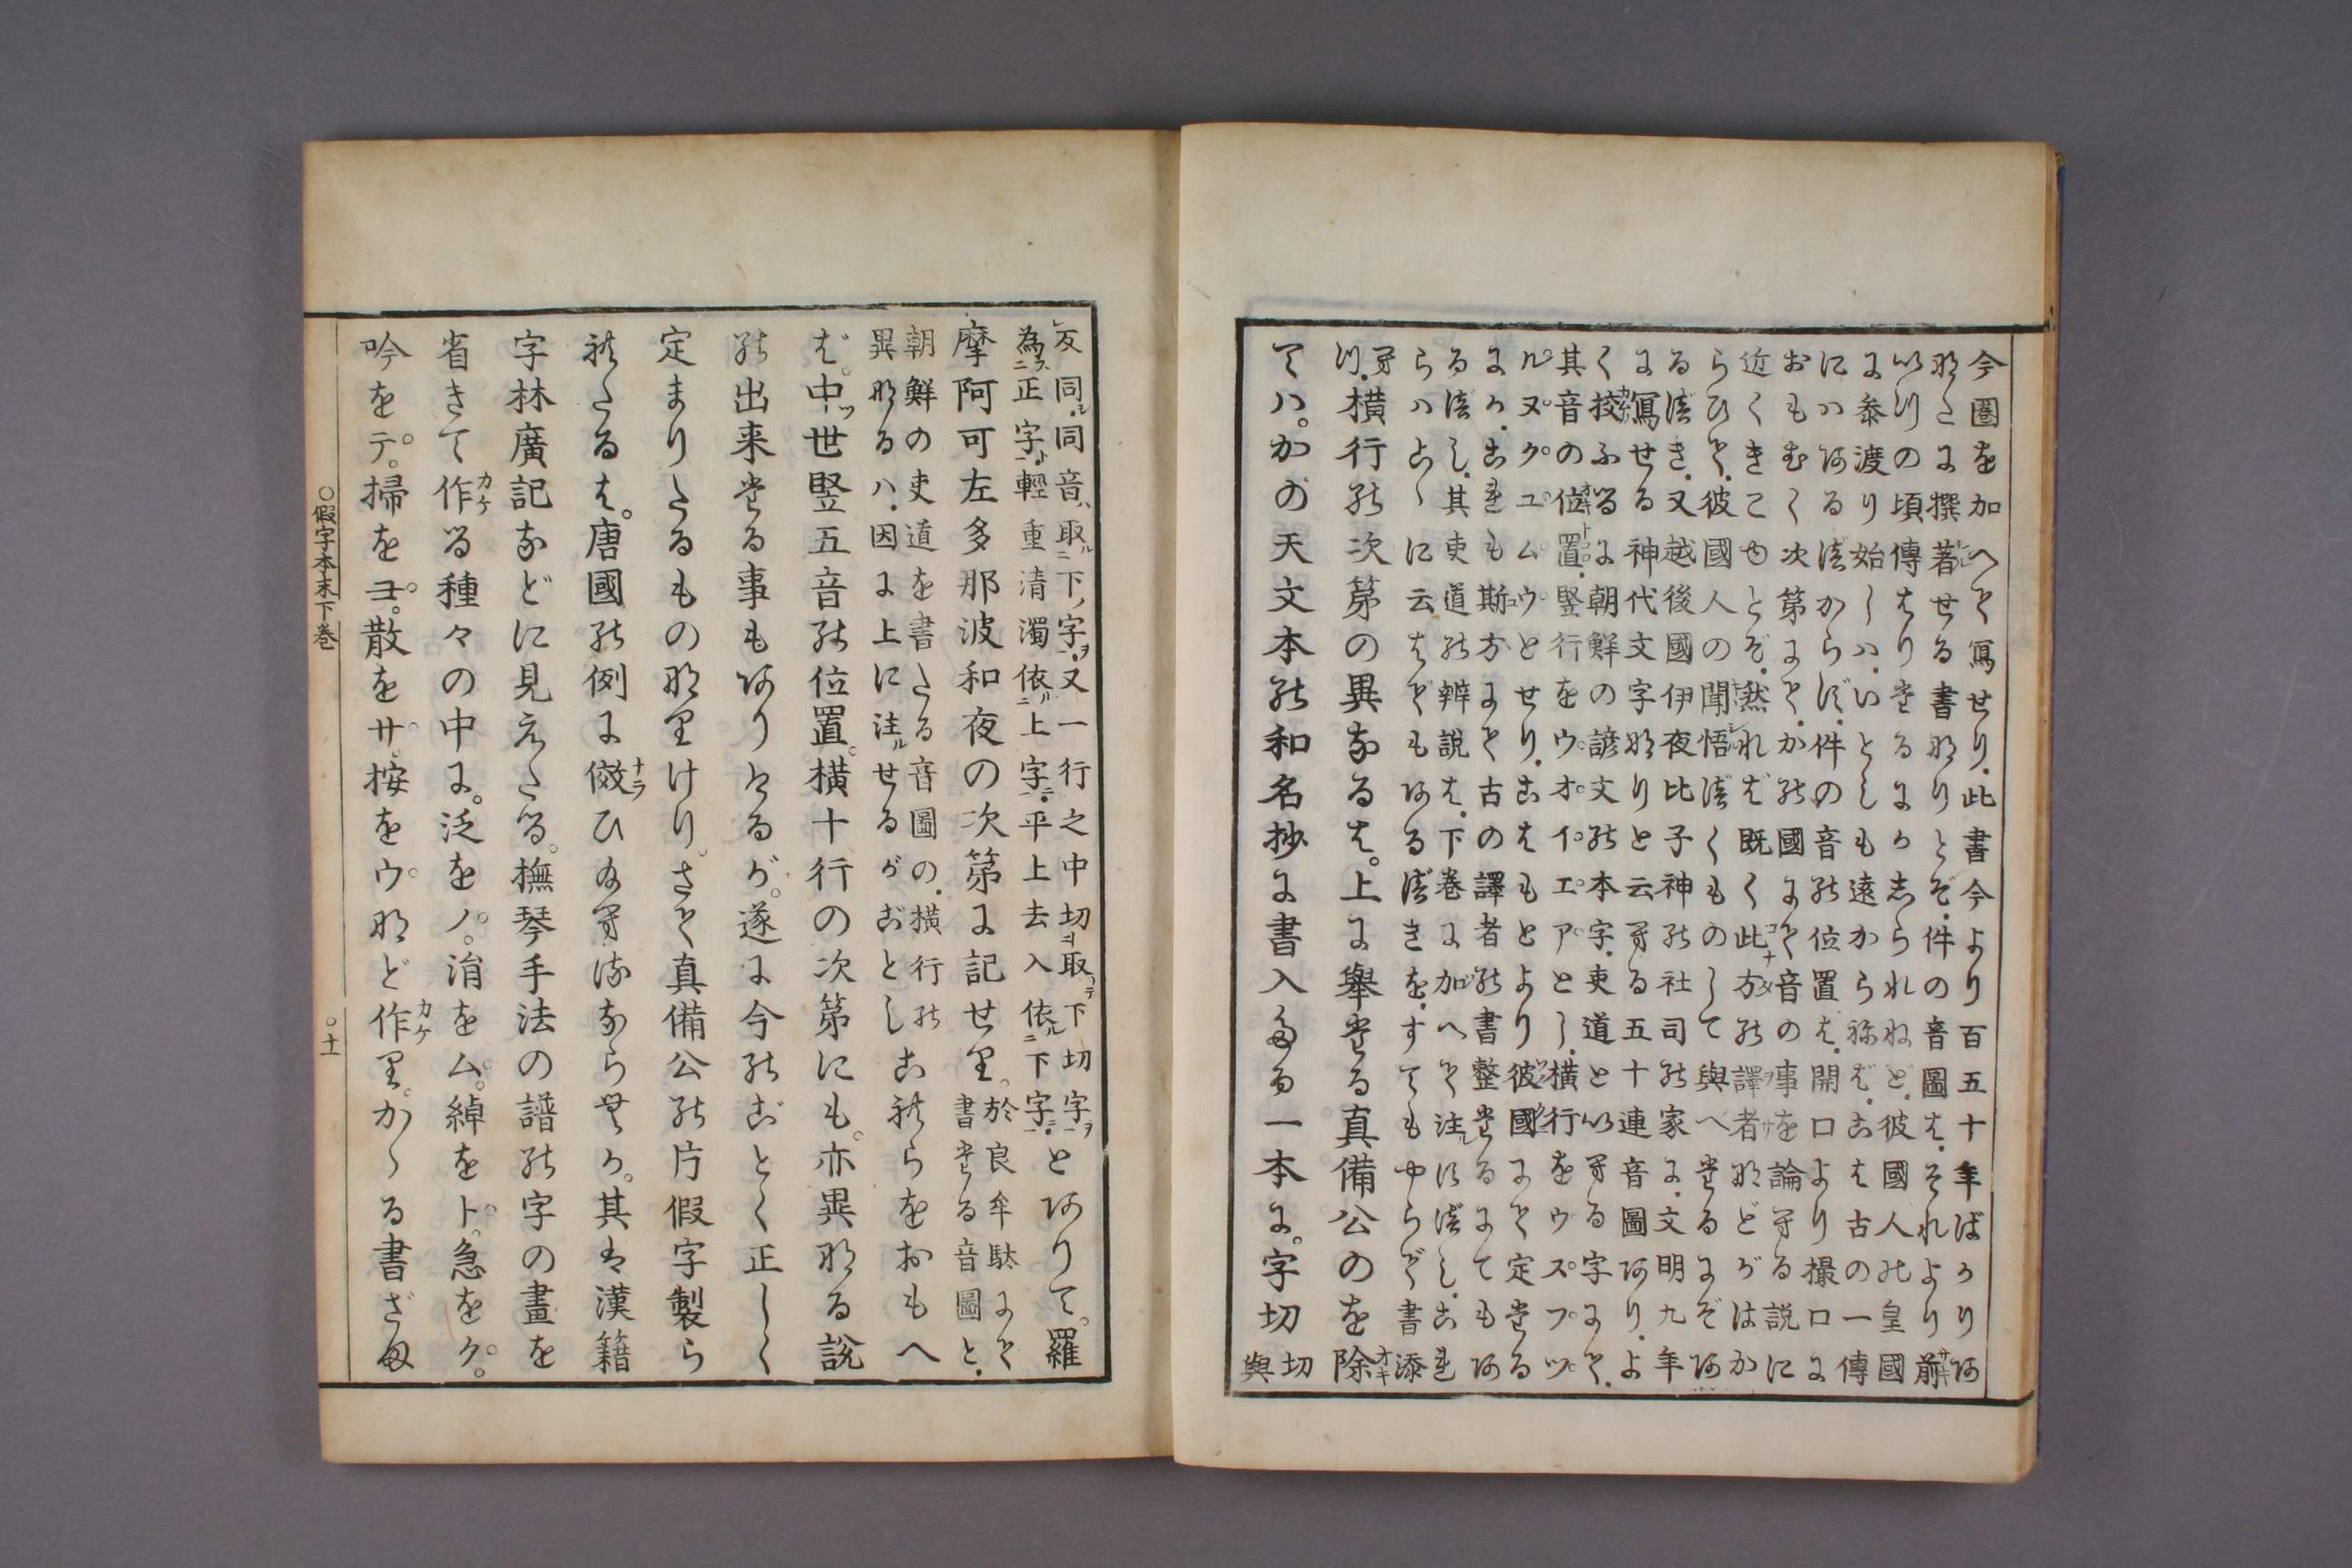 今圏を加へて寫せり此書今より百五十年ばかりあ
なたに撰著せる書なりとぞ件の音圖は それより前
いつの頃傳はりたるにか志られねど彼國人の皇國
に参渡り始しハいとしも遠からねばこは古の一傳
にハあるべからず件の音の位置は開口より撮口に
おもむく次第にてかの國にて音の事を論する説に
近くきこゆとぞ然れば既く此方の譯者などがはか
らひて彼國人の聞悟べくものして與へたるにぞあ
るべき又越後國伊夜比子神の社司の家に文明九年
に寫せる神代文字なりと云る五十連音圖ありよ
く挍ふるに朝鮮の諺文の本字吏道といふ字にて
其音の位置竪行をウオイエアとし横行をウスフツ
ルヌクユムウとせりこはもとより彼國にて定たる
にかこれも斯方にて古の譯者の書整たるにてもあ
るべし其吏道の辨説は下巻に加へて注すべしこれ
らハこゝに云はでもあるべきをすてもやらで書添
つ横行の次第の異なるは上に舉たる真備公のを除
てハかの天文本の和名抄に書入たる一本に字切 切與
反同同音取下字又一行之中切取下切字とありて羅
為正字輕重清濁依上字平上去入依下字
摩阿可左多那波和夜の次第に記せり於良牟駄にて書たる音圖と
朝鮮の吏道を書たる音圖の横行の
異なるハ因に上に注せるがごとしこれらをおもへ
ば中世竪五音の位置横十行の次第にも亦異なる説
の出来たる事もありけるが遂に今のごとく正しく
定まりたるものなりけりさて真備公の片假字製ら
れたるは唐國の例に傚ひなるならむか其は漢籍
字林廣記などに見えたる撫琴手法の譜の字の畫を
省きて作る種々の中に泛をノ涓をム綽をト急をク
吟をテ掃をヨ散をサ按をウなど作りかゝる書ざま
○假字本末下巻
○十一